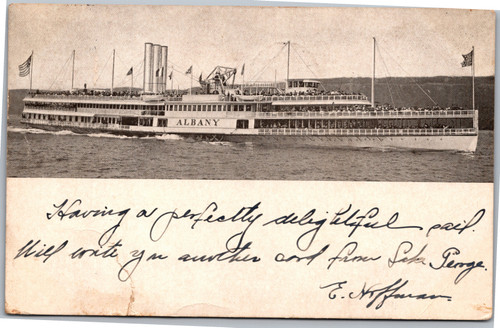 ALBANY
Having a perfectly delightful sail.
Will write you another card from Lake George.
E. Hoffman